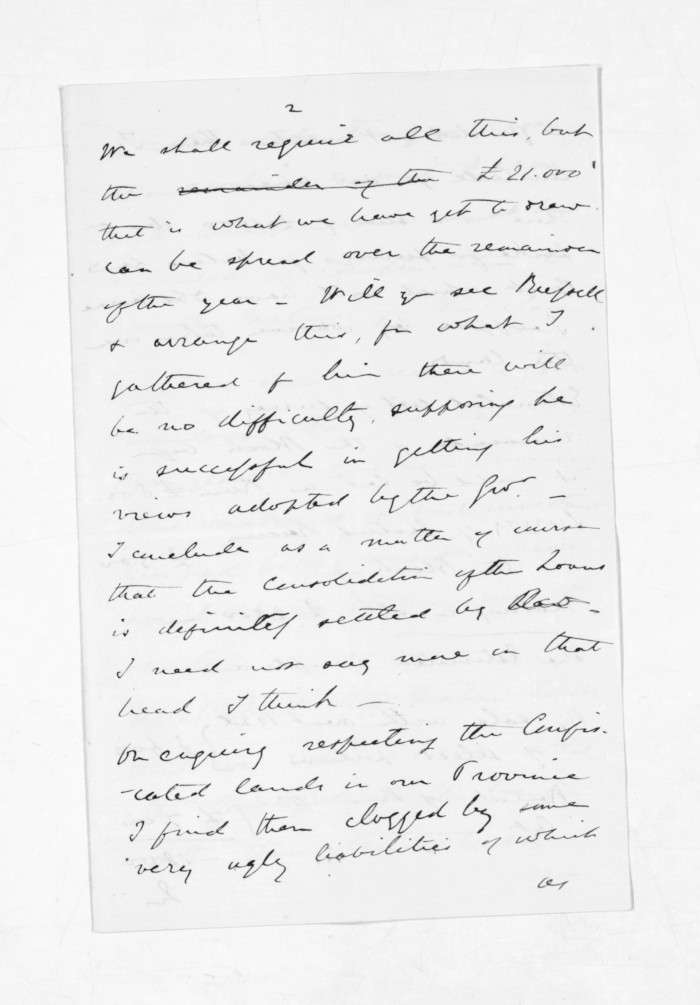 2
We shall require all this, but
the remainder of the £21.000
that is what we have yet to draw
can be spread over the remainder
of the year - Will yr see Russell
& arrange this, for what I
gathered f him there will
be no difficulty, supposing he
is successful in getting his
views adopted by the Govt. -
I conclude as a matter of course
that the Consolidation of the Loans
is definitely settled by -
I need not say more on that
head I think -
On enquiring respecting the Confis-
-cated lands in our Province
I find them clogged by some
very ugly liabilities of which
as